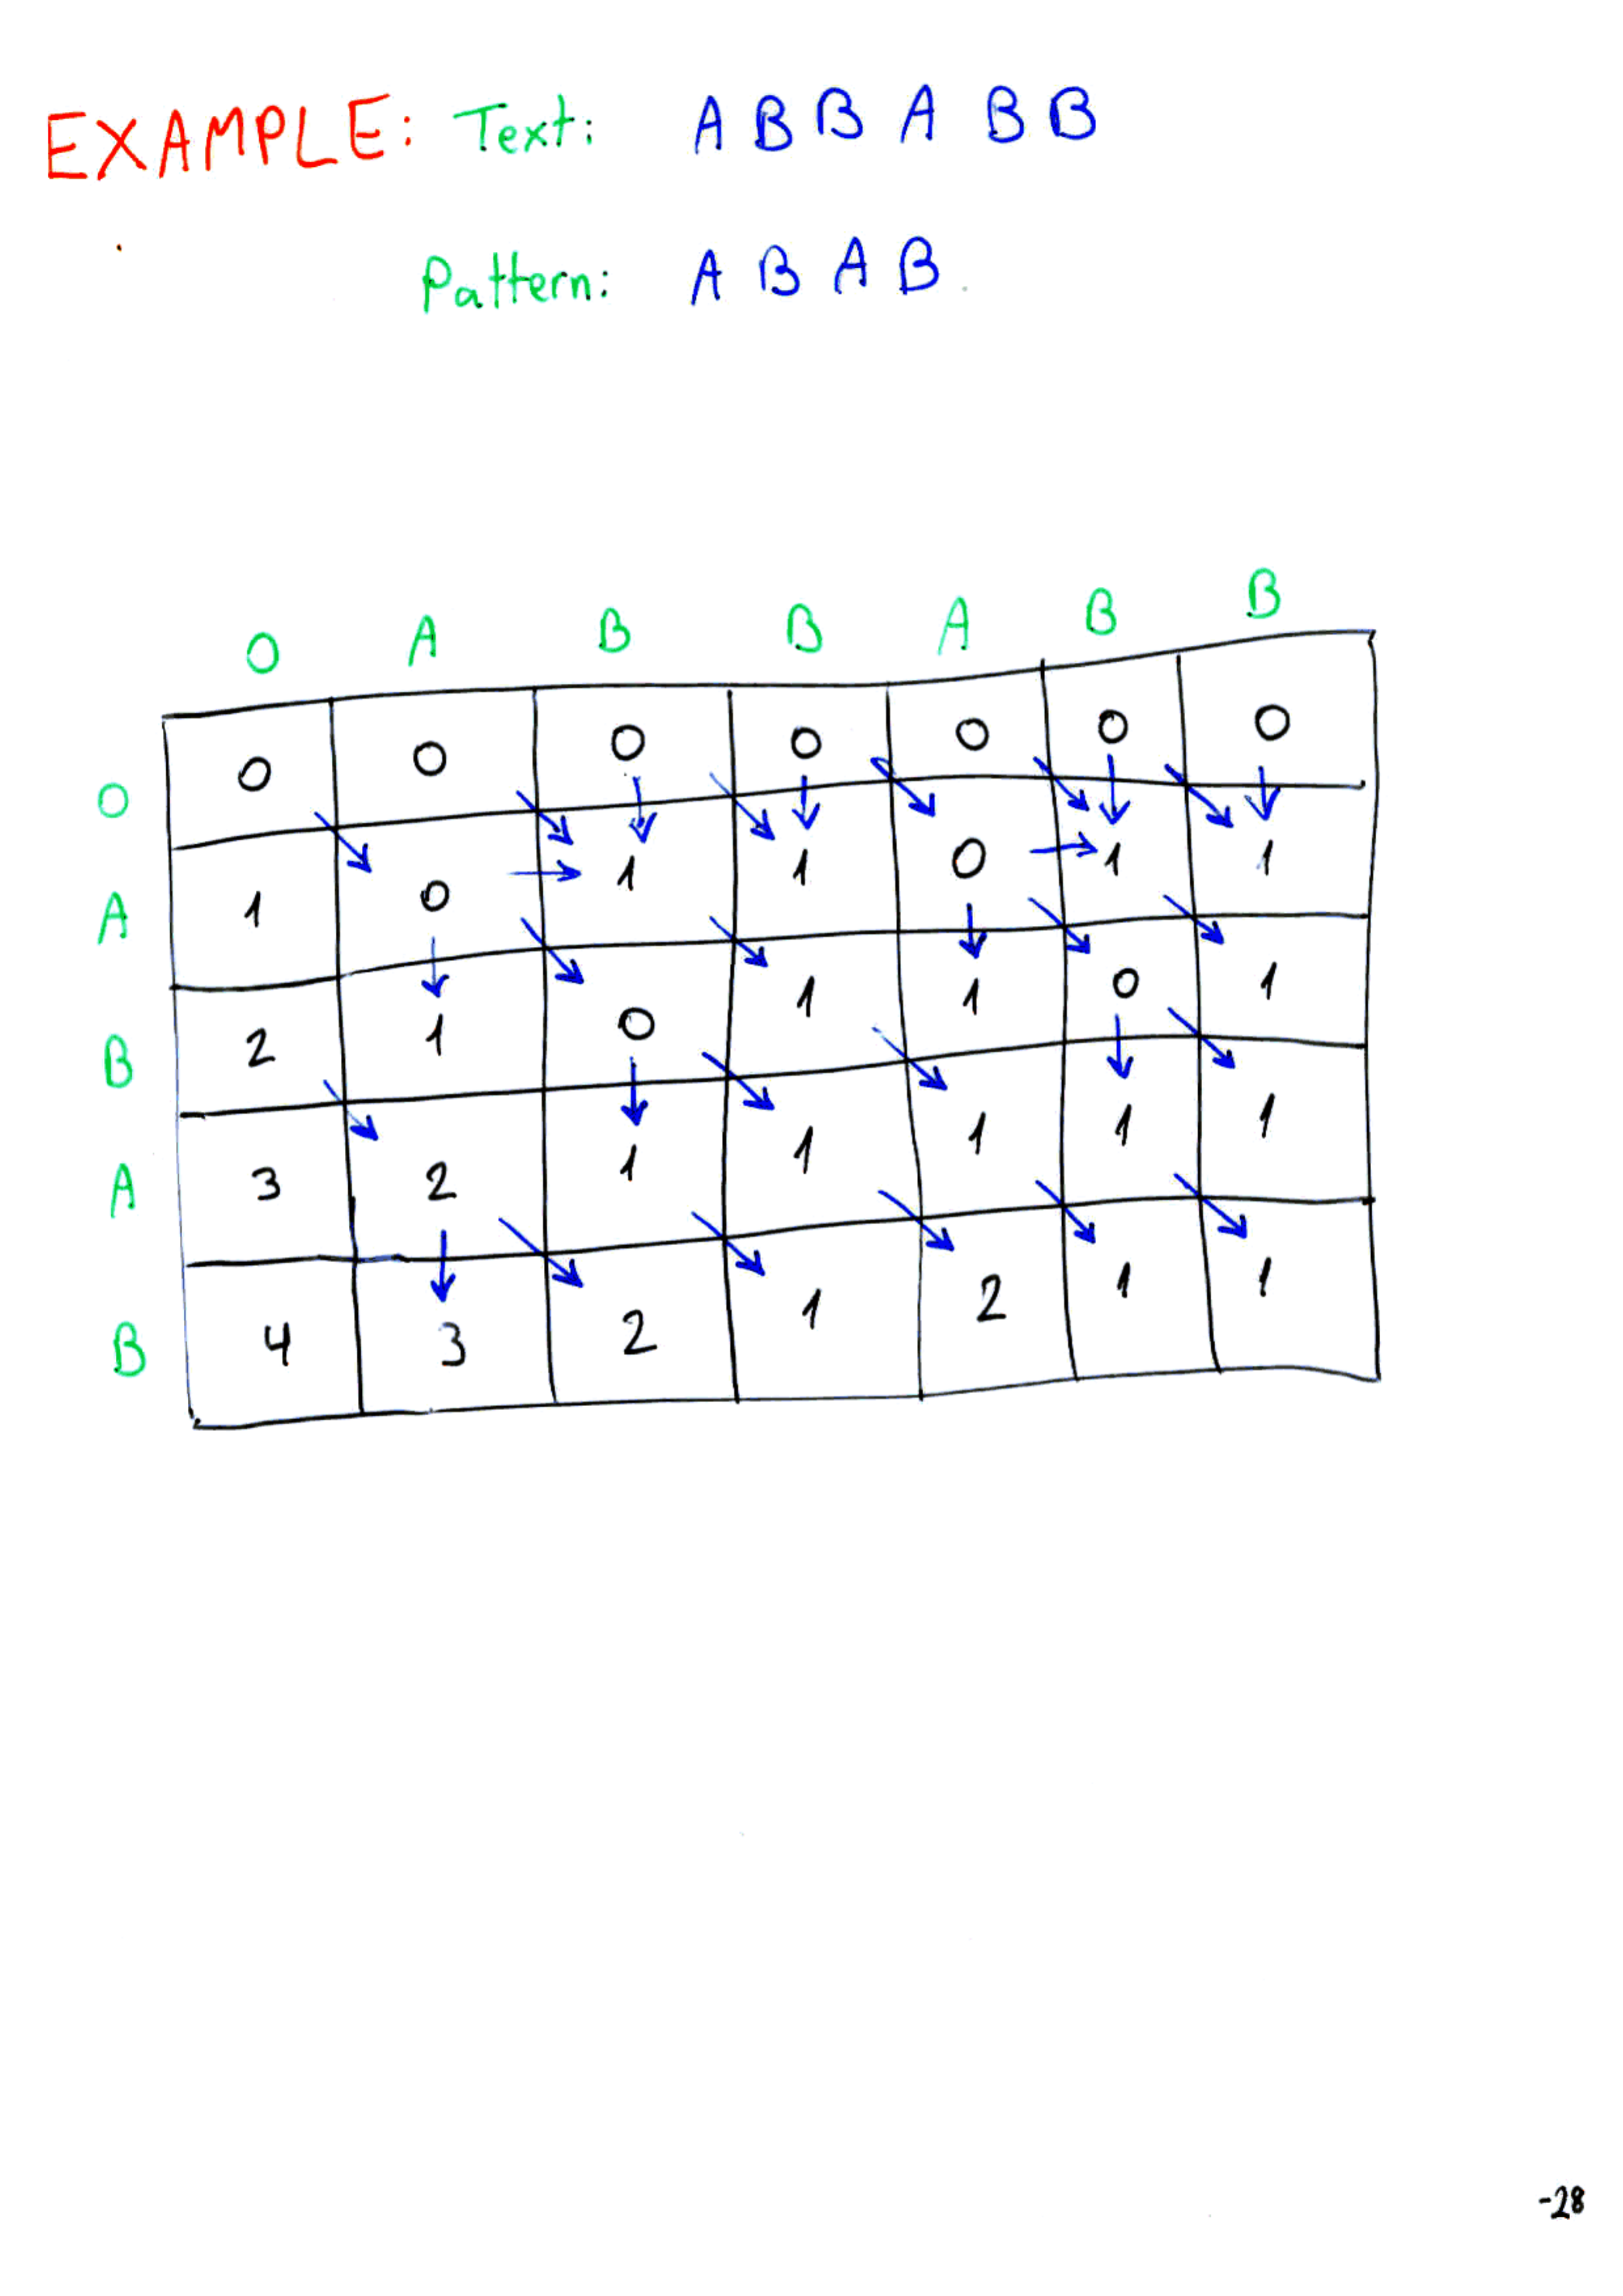 EXAMPLE: Text: A B B A B B
Pattern: A B A B
O A B B A B B
O 0 0 0 0 0 0 0
A 1 0 1 1 0 1 1
B 2 1 0 1 1 0 1
A 3 2 1 1 1 1 1
B 4 3 2 1 2 1 1
-28